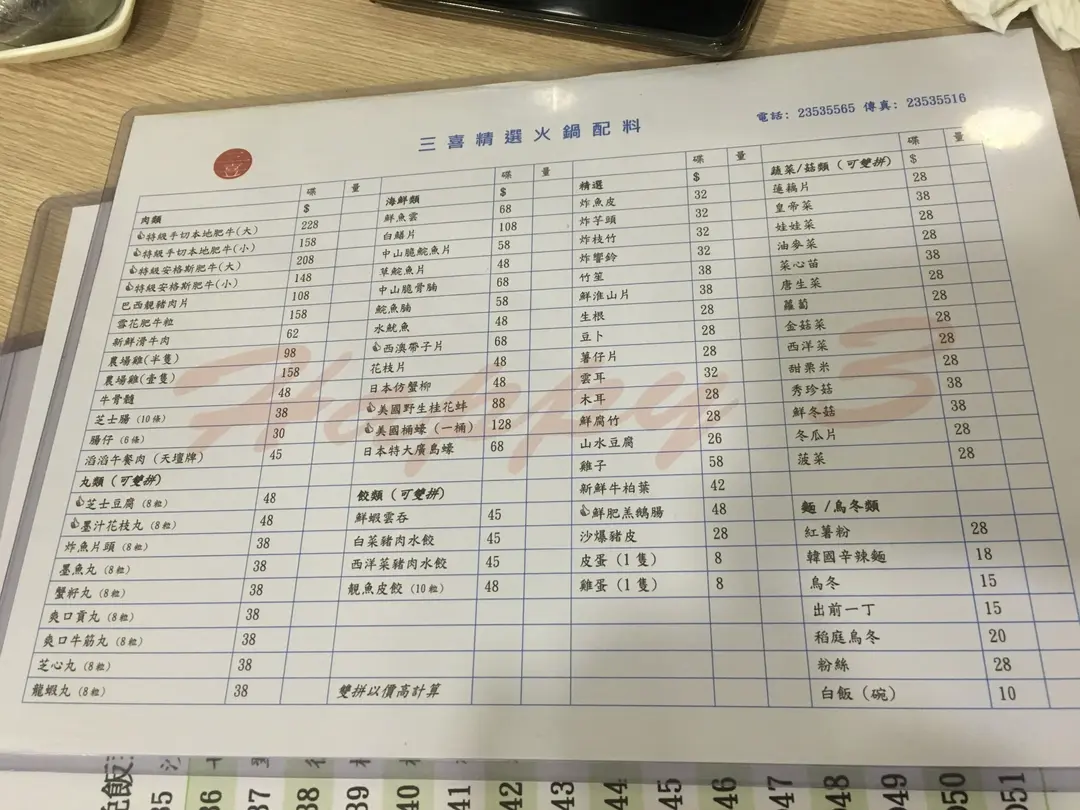 三喜精選火鍋配料
電話: 23535565 傳真: 23535516
碟 量
肉類 $
特級手切本地肥牛(大) 228
特級手切本地肥牛(小) 158
特級安格斯肥牛(大) 208
特級安格斯肥牛(小) 148
巴西靚豬肉片 108
雪花肥牛粒 158
新鮮滑牛肉 62
農場雞(半隻) 98
農場雞(壹隻) 158
牛骨髓 48
芝士腸 (10條) 38
腸仔 (6條) 30
滔滔午餐肉 (天壇牌) 45
丸類 (可雙拼)
芝士豆腐 (8粒) 48
墨汁花枝丸 (8粒) 48
炸魚片頭 (8粒) 38
墨魚丸 (8粒) 38
蟹籽丸 (8粒) 38
爽口貢丸 (8粒) 38
爽口牛筋丸 (8粒) 38
芝心丸 (8粒) 38
龍蝦丸 (8粒) 38
碟 量
海鮮類 $
鮮魚雲 68
白鱔片 108
中山脆鯇魚片 58
草鯇魚片 48
中山脆骨腩 68
鯇魚腩 58
水魷魚 48
西澳帶子片 68
花枝片 48
日本仿蟹柳 48
美國野生桂花蚌 88
美國桶蠔 (一桶) 128
日本特大廣島蠔 68
餃類 (可雙拼)
鮮蝦雲吞 45
白菜豬肉水餃 45
西洋菜豬肉水餃 45
靚魚皮餃 (10粒) 48
雙拼以價高計算
碟 量
精選 $
炸魚皮 32
炸芋頭 32
炸枝竹 32
炸響鈴 32
竹笙 38
鮮淮山片 38
生根 28
豆卜 28
薯仔片 28
雲耳 32
木耳 28
鮮腐竹 28
山水豆腐 26
雞子 58
新鮮牛柏葉 42
鮮肥羔鵝腸 48
沙爆豬皮 28
皮蛋 (1隻) 8
雞蛋 (1隻) 8
碟 量
蔬菜/菇類 (可雙拼) $
蓮藕片 28
皇帝菜 38
娃娃菜 28
油麥菜 28
菜心苗 38
唐生菜 28
蘿蔔 28
金菇菜 28
西洋菜 28
甜粟米 28
秀珍菇 38
鮮冬菇 38
冬瓜片 28
菠菜 28
麵 /烏冬類
紅薯粉 28
韓國辛辣麵 18
烏冬 15
出前一丁 15
稻庭烏冬 20
粉絲 28
白飯 (碗) 10
Happy 3
35 36 37 38 39 40 41 42 43 44 45 46 47 48 49 50 51